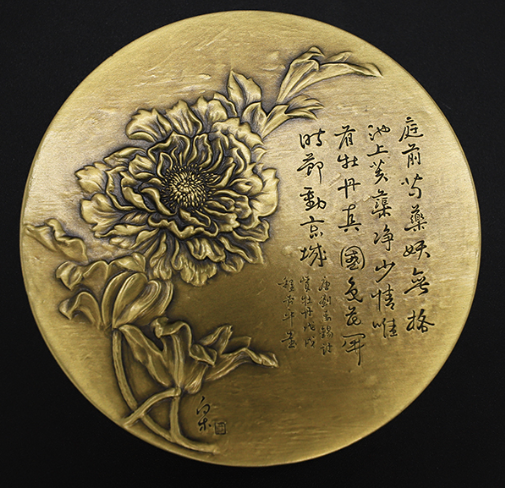 庭前芍藥妖無格
池上芙蕖净少情唯
有牡丹真國色花開
時節動京城
唐劉禹錫詩
賞牡丹